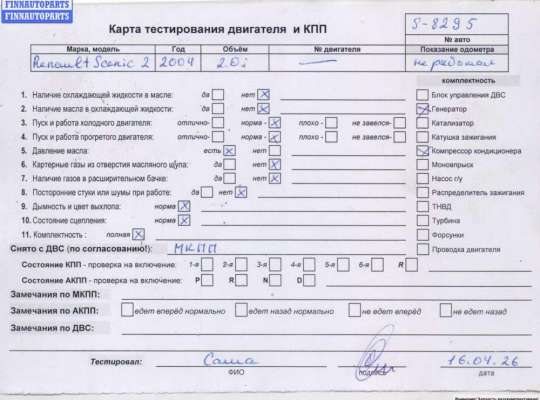 FINNAUTOPARTS
FINNAUTOPARTS
Карта тестирования двигателя и КПП
S-8295
№ авто
Марка, модель Год Объём № двигателя Показание одометра
Renault Scenic 2 2004 2.0i — не работал
комплектность
1. Наличие охлаждающей жидкости в масле: да нет Блок управления ДВС
2. Наличие масла в охлаждающей жидкости: да нет Генератор
3. Пуск и работа холодного двигателя: отлично- норма - плохо - не завелся- Катализатор
4. Пуск и работа прогретого двигателя: отлично- норма - плохо - не завелся- Катушка зажигания
5. Давление масла: есть нет Компрессор кондиционера
6. Картерные газы из отверстия масляного щупа: да нет Моновпрыск
7. Наличие газов в расширительном бачке: да нет Насос г/у
8. Посторонние стуки или шумы при работе: да нет Распределитель зажигания
9. Дымность и цвет выхлопа: норма ТНВД
10. Состояние сцепления: норма Турбина
11. Комплектность : полная Форсунки
Снято с ДВС (по согласованию!): МКПП Проводка двигателя
Состояние КПП - проверка на включение: 1-я 2-я 3-я 4-я 5-я 6-я R
Состояние АКПП - проверка на включение: P R N D
Замечания по МКПП:
Замечания по АКПП: едет вперёд нормально едет назад нормально не едет вперёд не едет назад
Замечания по ДВС:
Тестировал: Саша 16.04.26
ФИО подпись дата